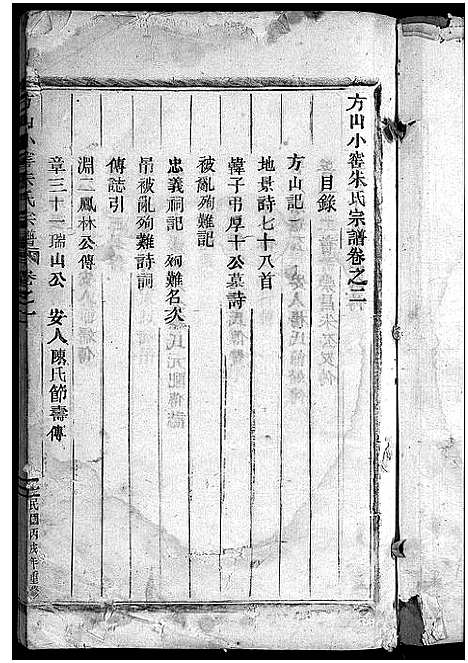 方山小窖朱氏宗譜卷之二
目錄
方山記
地景詩七十八首
韓子弔厚十公墓詩
被亂殉難記
忠義祠記 殉難名次
弔被亂殉難詩詞
傳誌引
淵二鳳林公傳
章三十一瑞山公 安人陳氏節壽傳
方山小窖朱氏宗譜 卷之二
民國丙戌年重修